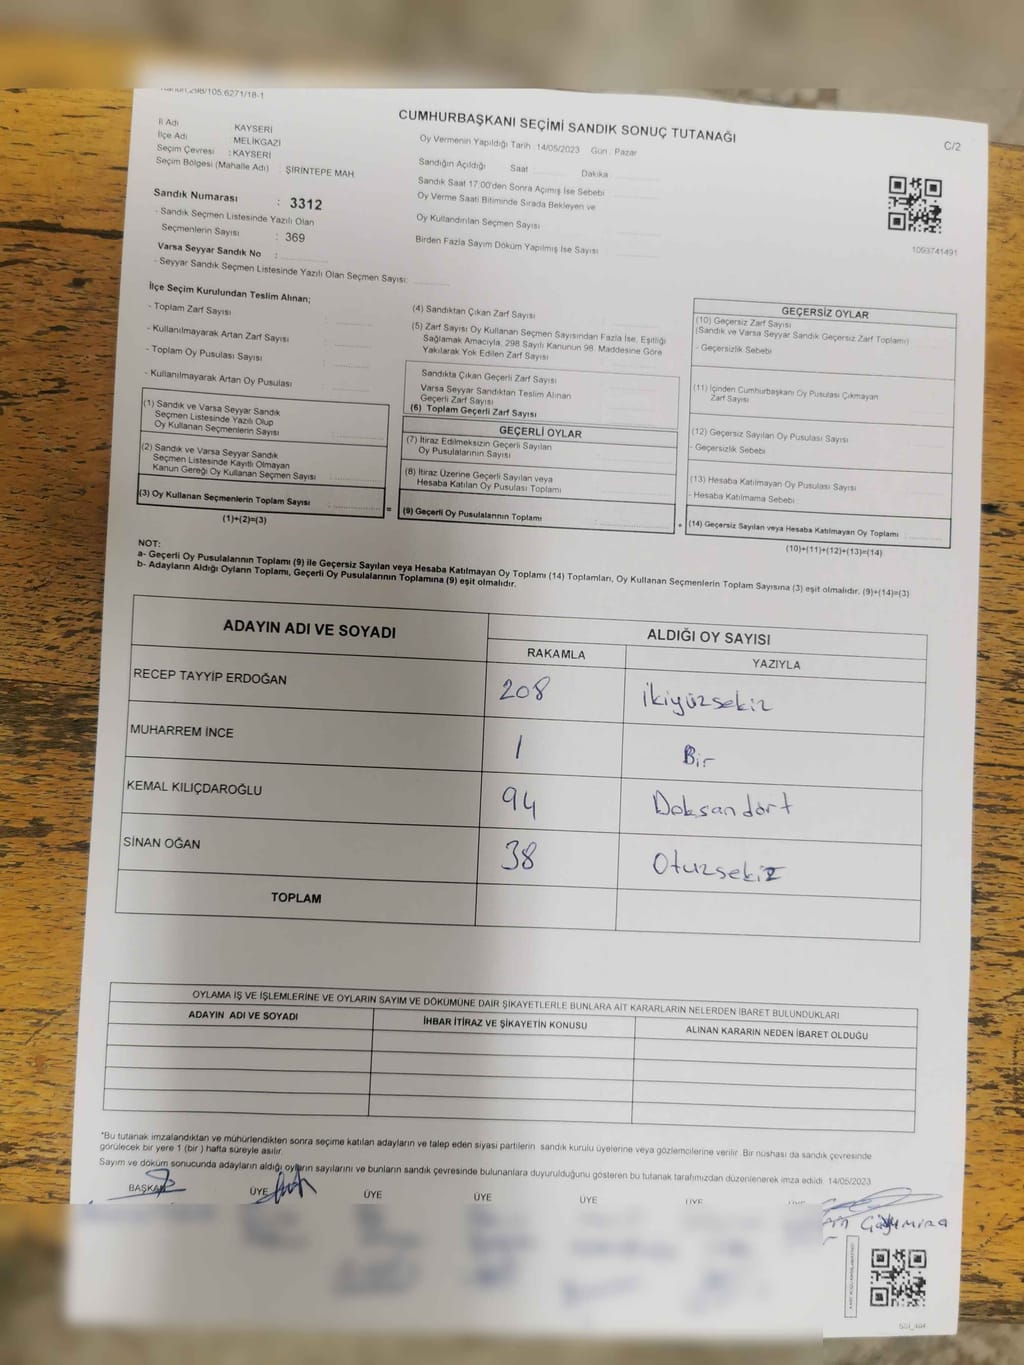 Kanun:298/105.6271/18-1
CUMHURBAŞKANI SEÇİMİ SANDIK SONUÇ TUTANAĞI
C/2
İl Adı KAYSERİ
İlçe Adı MELİKGAZİ
Seçim Çevresi : KAYSERİ
Seçim Bölgesi (Mahalle Adı) : ŞİRİNTEPE MAH.
Sandık Numarası : 3312
- Sandık Seçmen Listesinde Yazılı Olan
Seçmenlerin Sayısı : 369
Varsa Seyyar Sandık No :
- Seyyar Sandık Seçmen Listesinde Yazılı Olan Seçmen Sayısı:
Oy Vermenin Yapıldığı Tarih : 14/05/2023 Gün : Pazar
Sandığın Açıldığı Saat Dakika
Sandık Saat 17.00'den Sonra Açımış İse Sebebi
Oy Verme Saati Bitiminde Sırada Bekleyen ve
Oy Kullandırılan Seçmen Sayısı
Birden Fazla Sayım Döküm Yapılmış İse Sayısı
1093741491
İlçe Seçim Kurulundan Teslim Alınan;
- Toplam Zarf Sayısı :
- Kullanılmayarak Artan Zarf Sayısı :
- Toplam Oy Pusulası Sayısı :
- Kullanılmayarak Artan Oy Pusulası :
(1) Sandık ve Varsa Seyyar Sandık
Seçmen Listesinde Yazılı Olup
Oy Kullanan Seçmenlerin Sayısı :
(2) Sandık ve Varsa Seyyar Sandık
Seçmen Listesinde Kayıtlı Olmayan
Kanun Gereği Oy Kullanan Seçmen Sayısı :
(3) Oy Kullanan Seçmenlerin Toplam Sayısı :
(1)+(2)=(3)
=
(4) Sandıktan Çıkan Zarf Sayısı
(5) Zarf Sayısı Oy Kullanan Seçmen Sayısından Fazla İse, Eşitliği
Sağlamak Amacıyla; 298 Sayılı Kanunun 98. Maddesine Göre
Yakılarak Yok Edilen Zarf Sayısı
Sandıkta Çıkan Geçerli Zarf Sayısı
Varsa Seyyar Sandıktan Teslim Alınan
Geçerli Zarf Sayısı
(6) Toplam Geçerli Zarf Sayısı
GEÇERLİ OYLAR
(7) İtiraz Edilmeksizin Geçerli Sayılan
Oy Pusulalarının Sayısı
(8) İtiraz Üzerine Geçerli Sayılan veya
Hesaba Katılan Oy Pusulası Toplamı :
(9) Geçerli Oy Pusulalarının Toplamı :
+
GEÇERSİZ OYLAR
(10) Geçersiz Zarf Sayısı
(Sandık ve Varsa Seyyar Sandık Geçersiz Zarf Toplamı)
- Geçersizlik Sebebi
(11) İçinden Cumhurbaşkanı Oy Pusulası Çıkmayan
Zarf Sayısı
(12) Geçersiz Sayılan Oy Pusulası Sayısı
- Geçersizlik Sebebi
(13) Hesaba Katılmayan Oy Pusulası Sayısı
- Hesaba Katılmama Sebebi
(14) Geçersiz Sayılan veya Hesaba Katılmayan Oy Toplamı :
(10)+(11)+(12)+(13)=(14)
NOT:
a- Geçerli Oy Pusulalarının Toplamı (9) ile Geçersiz Sayılan veya Hesaba Katılmayan Oy Toplamı (14) Toplamları, Oy Kullanan Seçmenlerin Toplam Sayısına (3) eşit olmalıdır. (9)+(14)=(3)
b- Adayların Aldığı Oyların Toplamı, Geçerli Oy Pusulalarının Toplamına (9) eşit olmalıdır.
ADAYIN ADI VE SOYADI ALDIĞI OY SAYISI
RAKAMLA YAZIYLA
RECEP TAYYİP ERDOĞAN 208 İkiyüzsekiz
MUHARREM İNCE 1 Bir
KEMAL KILIÇDAROĞLU 94 Doksandört
SİNAN OĞAN 38 Otuzsekiz
TOPLAM
OYLAMA İŞ VE İŞLEMLERİNE VE OYLARIN SAYIM VE DÖKÜMÜNE DAİR ŞİKAYETLERLE BUNLARA AİT KARARLARIN NELERDEN İBARET BULUNDUKLARI
ADAYIN ADI VE SOYADI İHBAR İTİRAZ VE ŞİKAYETİN KONUSU ALINAN KARARIN NEDEN İBARET OLDUĞU
*Bu tutanak imzalandıktan ve mühürlendikten sonra seçime katılan adayların ve talep eden siyasi partilerin sandık kurulu üyelerine veya gözlemcilerine verilir. Bir nüshası da sandık çevresinde
görülecek bir yere 1 (bir ) hafta süreyle asılır.
Sayım ve döküm sonucunda adayların aldığı oyların sayılarını ve bunların sandık çevresinde bulunanlara duyurulduğunu gösteren bu tutanak tarafımızdan düzenlenerek imza edildi. 14/05/2023
BAŞKAN ÜYE ÜYE ÜYE ÜYE ÜYE